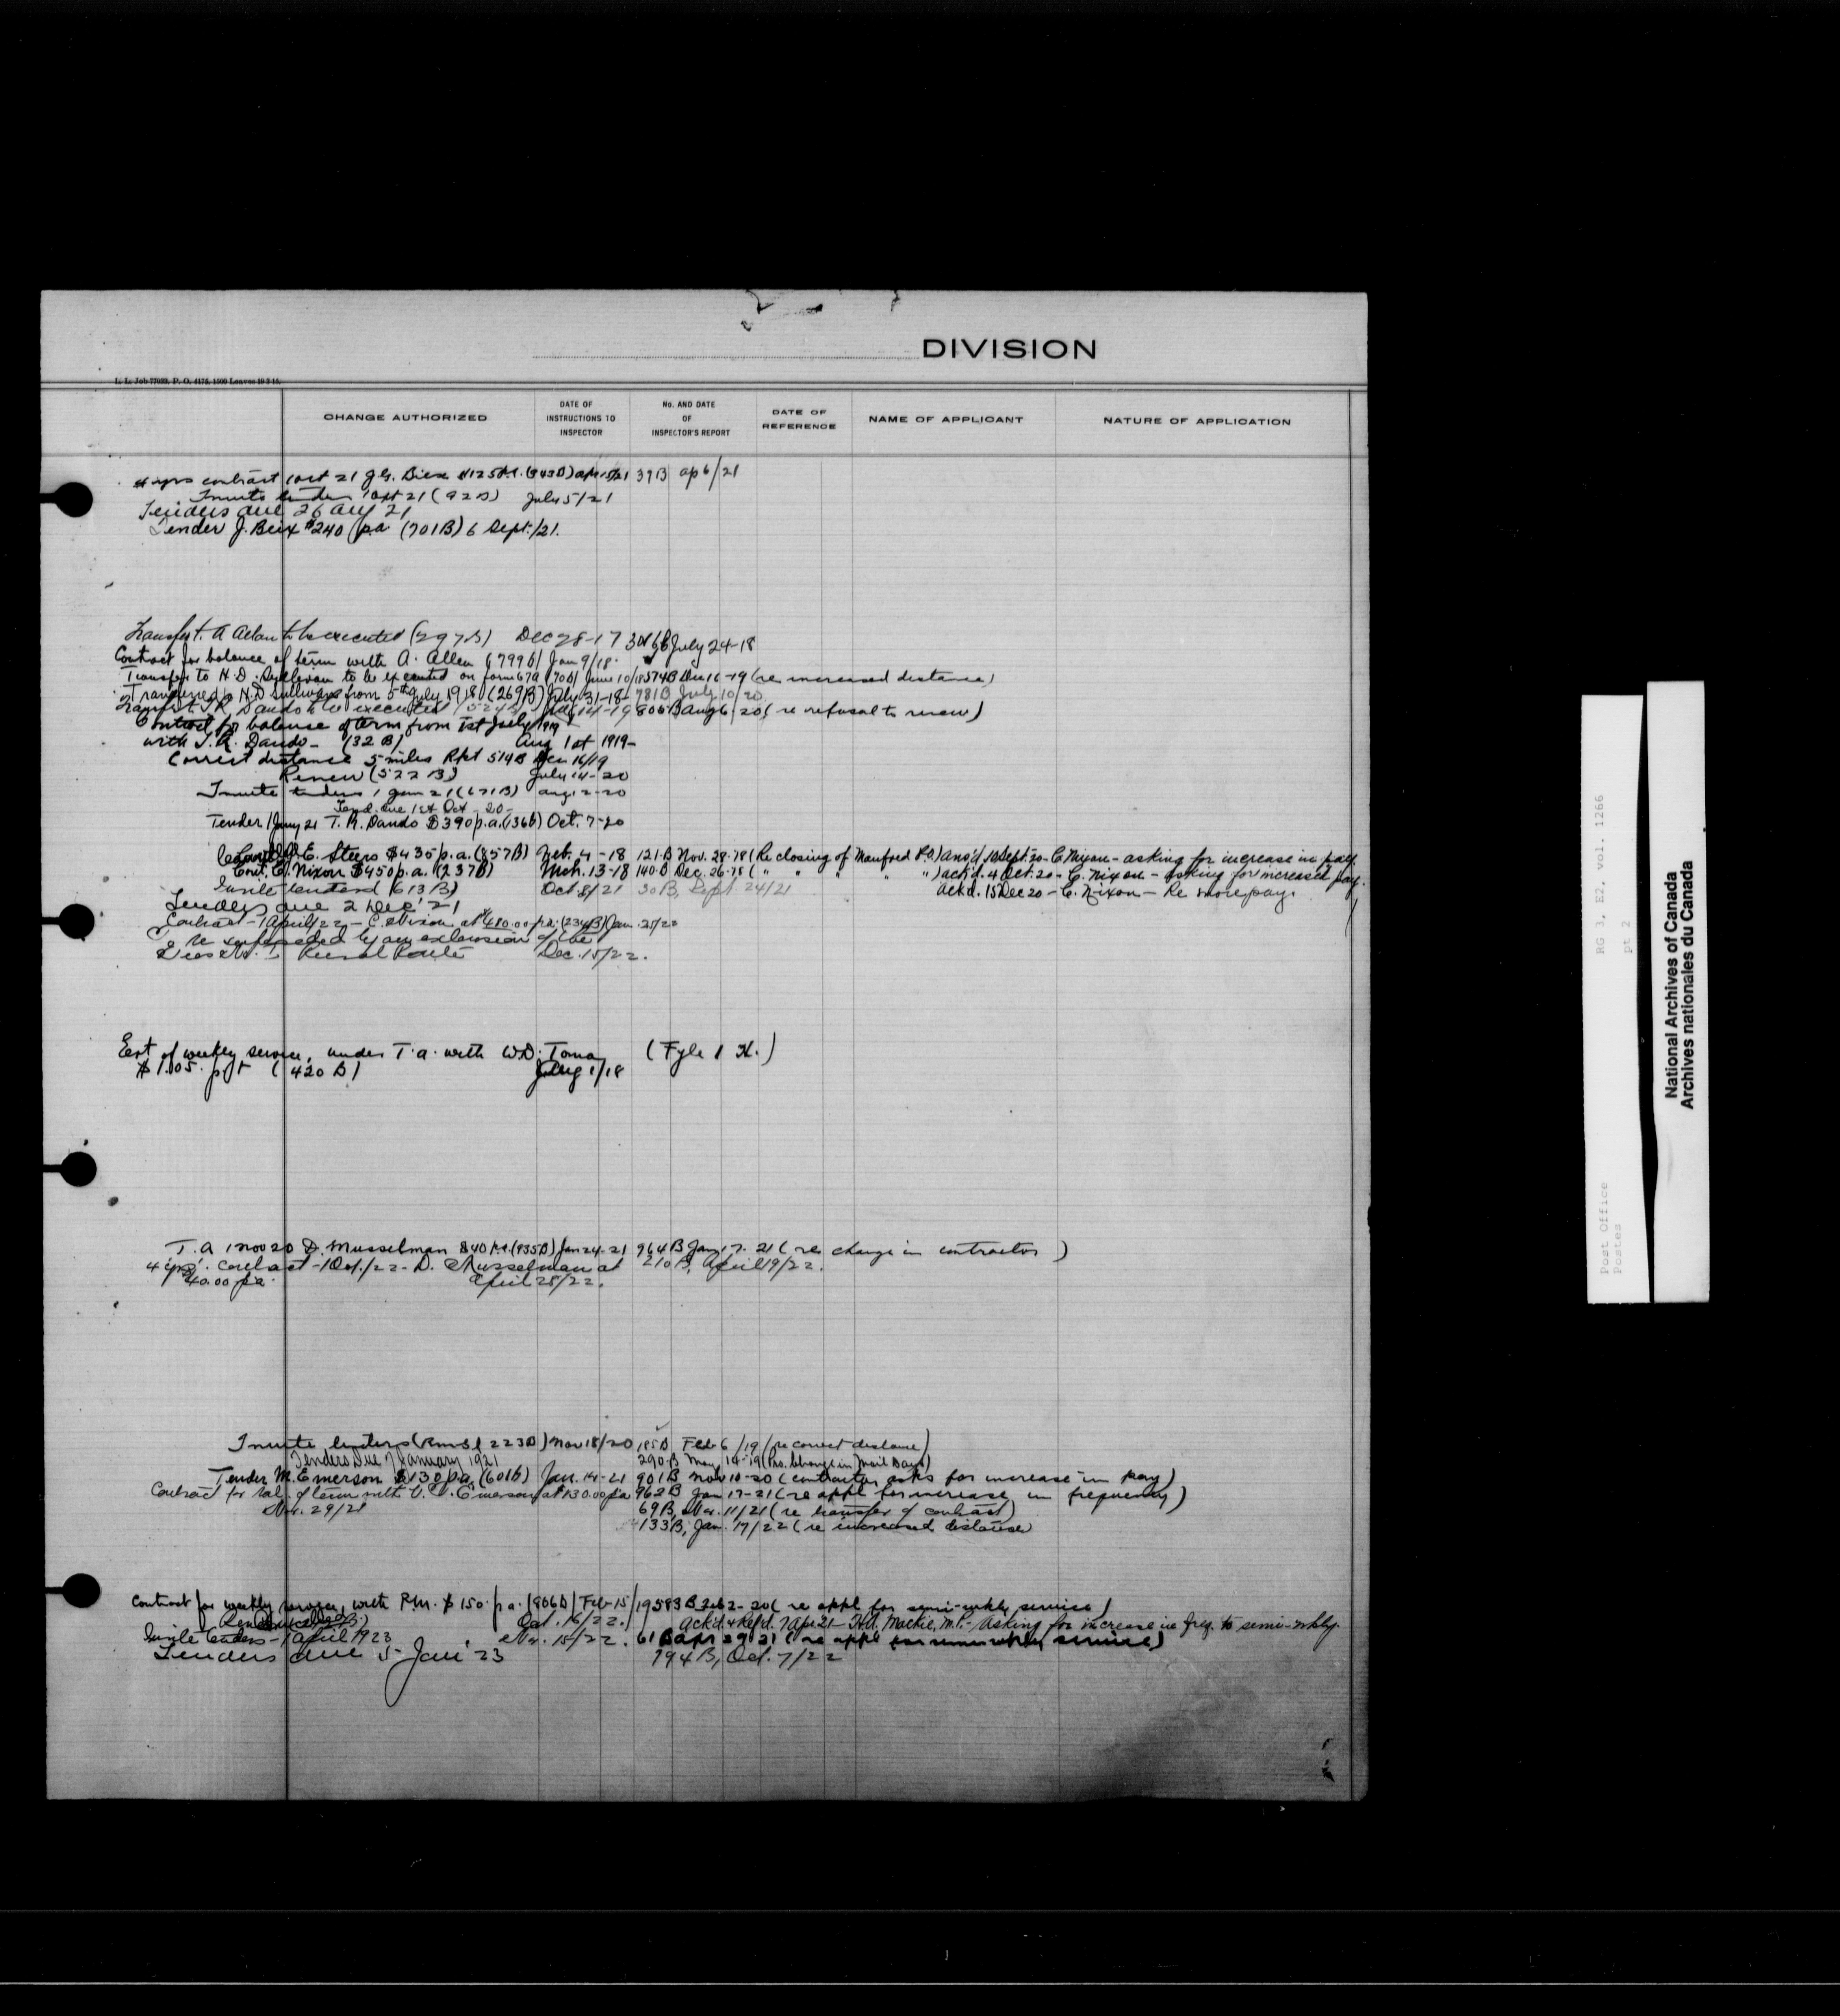 DIVISION
L. L. Job 77039. P. O. 4175. 1500 Leaves 19-3-15.
CHANGE AUTHORIZED
DATE OF INSTRUCTIONS TO INSPECTOR
No. AND DATE OF INSPECTOR'S REPORT
DATE OF REFERENCE
NAME OF APPLICANT
NATURE OF APPLICATION
4 yrs contract 1 Oct 21 $125 (343B) apr 15/21 39B ap 6/21
Invite tenders 1 Oct 21 (92B) July 5/21
Tenders due 26 Aug 21
Tender J. Beix $240 p.a. (701B) 6 Sept./21.
Transfer t. A Allan to be executed (297B) Dec 28-17 July 24-18
Contract for balance of term with A. Allen (799B) Jan 9/18.
Transfer to H.D. Sullivan to be executed on form 67A (70B) June 10/18 574B Dec 16-19 (re increased distance)
Transferred to H.D Sullivan from 5th July 1918 (269B) July 31-18- 781B July 10/20
Transfer t. T.R. Dando to be executed (524B) July 14-19 806B Aug 6-20 (re refusal to renew)
Contract for balance of term from 1st July 1919
with T.R. Dando- (32 B) Aug 1st 1919-
Correct distance 5 miles Rpt 574B Dec 16/19
Renew (522 B) July 14-20
Invite tenders 1 Jan 21 (671B) Aug 12-20
Tend. due 1st Oct - 20-
Tender 1 Jany 21 T. R. Dando $390 p.a. (136B) Oct. 7-20
E. Steers $435 p.a. (857B) Feb. 4-18 121-B Nov. 28-18 (Re closing of Manfred P.O.) ans'd 10 Sept. 20- C. Nixon- asking for increase in pay.
Cont. C. Nixon $450 p.a. (237B) Mch. 13-18 140-B Dec. 26-18 (" " " ") ack'd. 4 Oct. 20- C. Nixon- asking for increased pay.
Invite tenders (613B) Oct. 8/21 30B, Sept. 24/21 ack'd. 15 Dec 20- C. Nixon- Re more pay.
Tenders due 2 Dec' 21
Contract- 1 April/22- C. Nixon at $480.00 p.a. (234B) Jan. 25/22
To be superseded by an extension of the
Rural Route Dec. 15/22.
Ext of weekly service, under T.a. with W.D. Toma (Fyle 1 K.)
$1.05 p.t (420 B) Aug 1/18
T.a 1 Nov 20 D. Musselman $40 p.a. (935B) Jan 24-21 964B Jan 17-21 (re change in contractor)
4 yrs'. contract - 1 Oct./22- D. Musselman at 210B, April 19/22.
$40.00 p.a. April 28/22.
Invite tenders (RMS 223B) Nov 18/20 185B Feb 6/19 (re correct distance)
Tenders Due 7 January 1921 290-B May 14-19 (Pro. Change in Mail Days)
Tender M. Emerson $130 p.a. (601B) Jan. 14-21 901B Nov 10-20 (contractor asks for increase in pay)
Contract for bal. of term with Emerson at 130.00 p.a. 962B Jan 17-21 (re appl for increase in frequency)
Nov. 29/21 69B, Nov. 11/21 (re transfer of contract)
133B, Jan. 17/22 (re increased distance)
Contract for weekly service, with P.M. $150. p.a. (906B) Feb-15/19 583B Feb 2-20 (re appl for semi-wkly service)
Oct. 16/22. Ack'd & Rep'd. 7 Apr 21- H.A. Mackie, M.P.- Asking for increase in freq. to semi-wkly.
Invite tenders - 1 April 1923 Nov. 15/22. 61B apr 29 21 (re appl for semi wkly service)
Tenders due 5 Jan' 23 794B, Oct. 7/22
Post Office
Postes
RG 3, E2, vol. 1266
pt 2
National Archives of Canada
Archives nationales du Canada